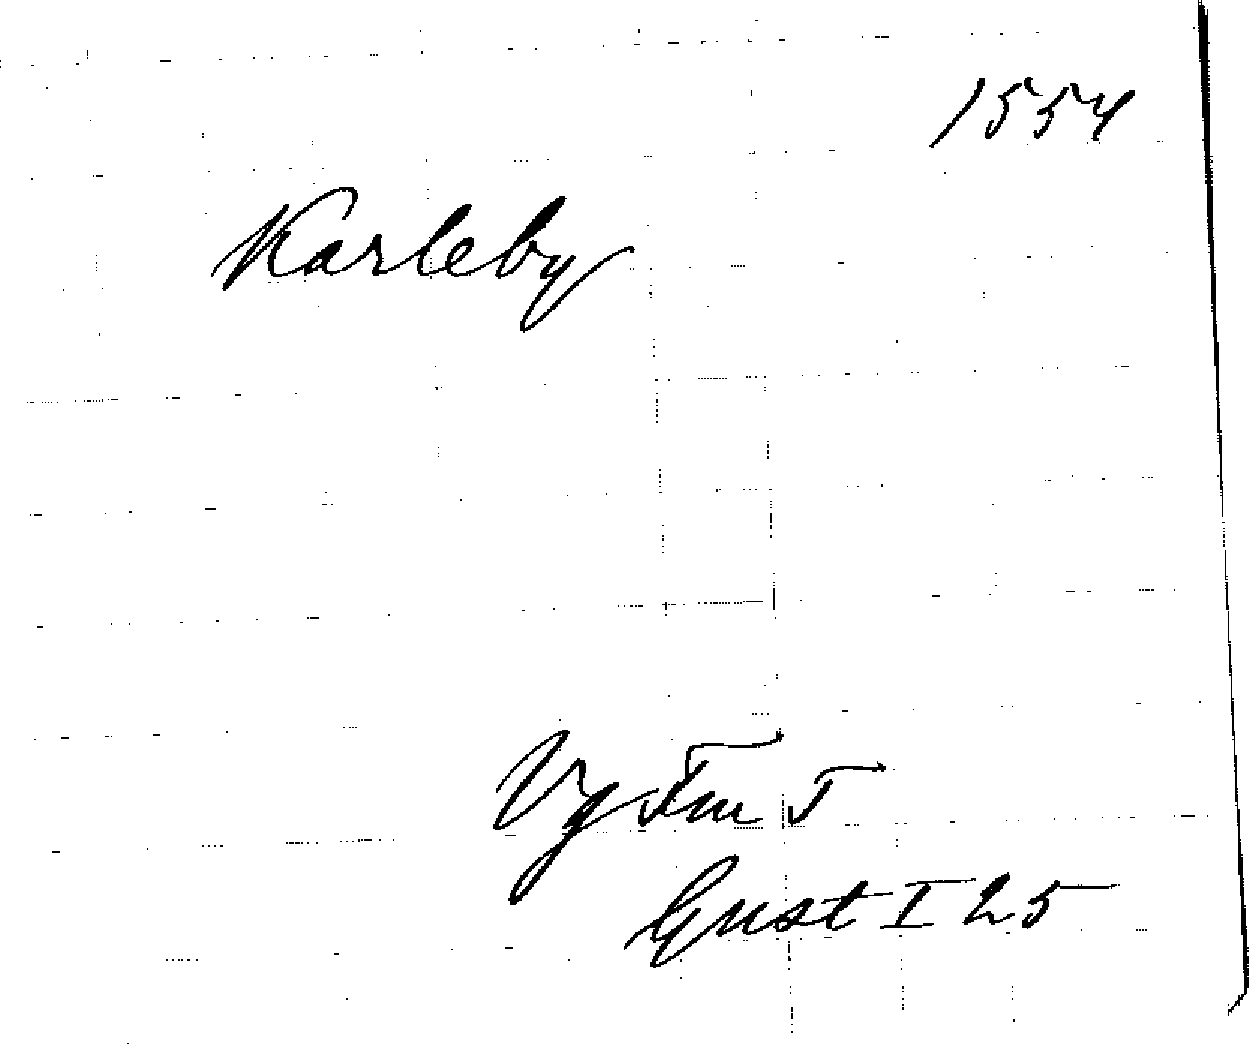 1554
Karleby
Vg Fm T
Gust I 25